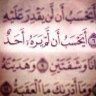 أَيَحْسَبُ أَن لَّن يَقْدِرَ عَلَيْهِ
أَيَحْسَبُ أَن لَّمْ يَرَهُۥٓ أَحَدٌ
وَشَفَتَيْنِ ۝ وَهَدَيْنَٰهُ
وَمَآ أَدْرَىٰكَ مَا ٱلْعَقَبَةُ